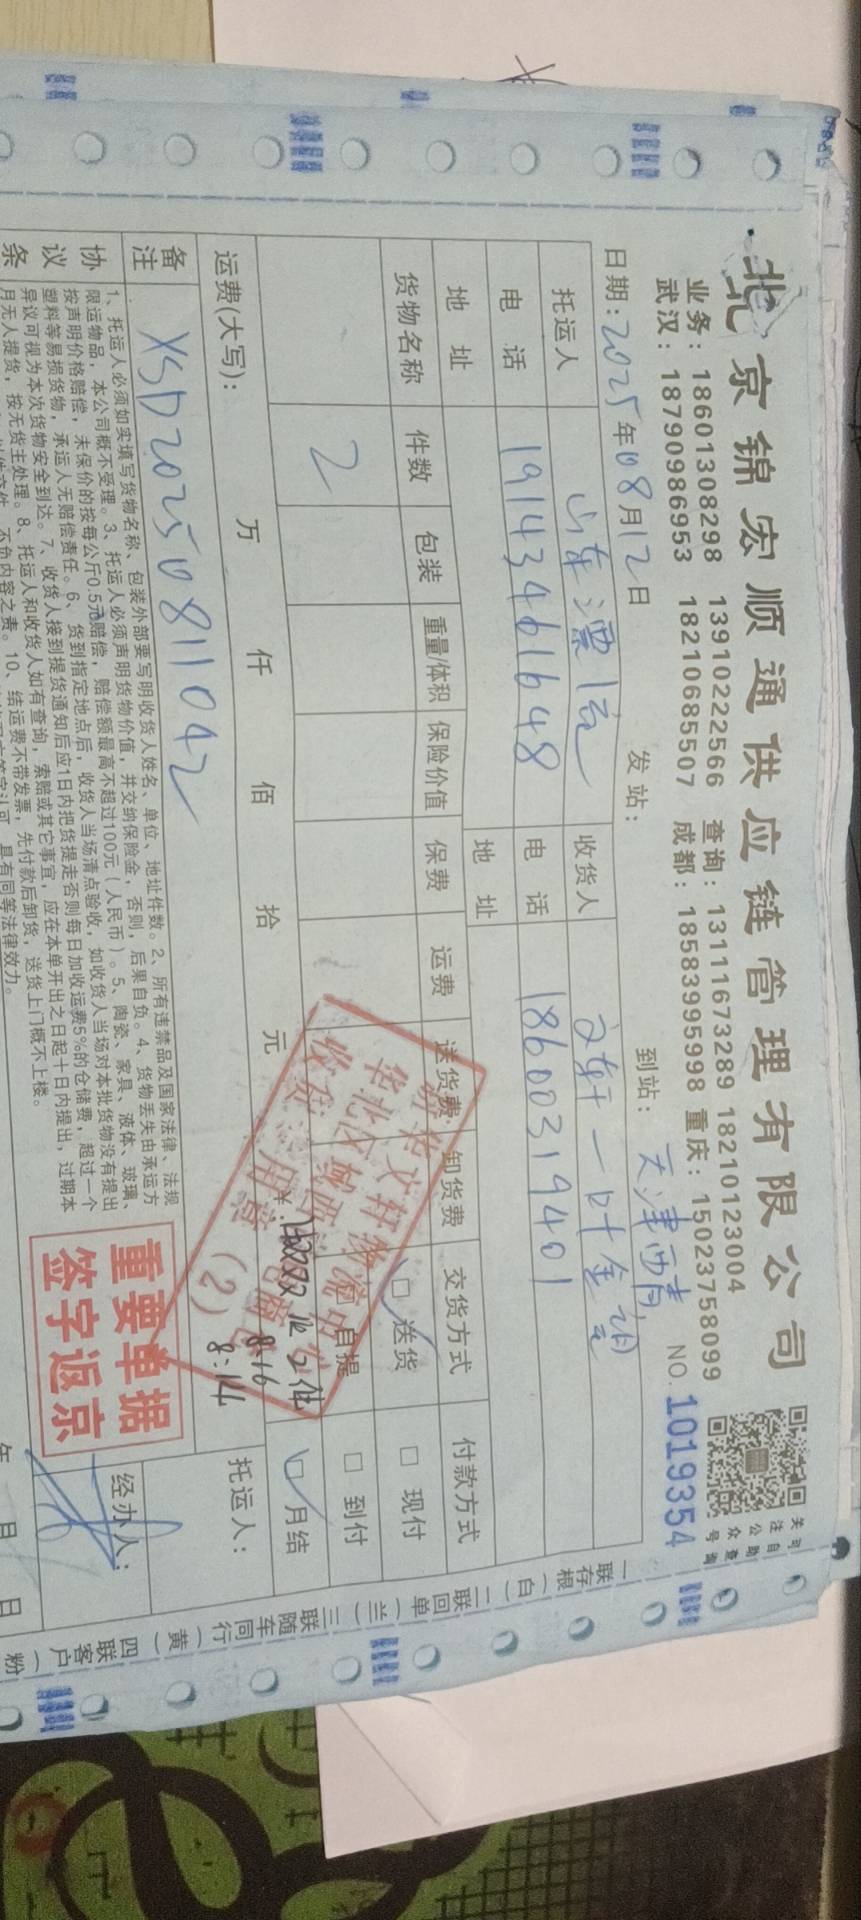 北京锦宏顺通供应链管理有限公司
关注公众号
可自助查询
业务：18601308298 13910222566 查询：13111673289 18210123004
武汉：18790986953 18210685507 成都：18583995998 重庆：15023758099
日期：2025年08月12日 发站： 到站：天津西青 NO.1019354
托运人 山东 收货人
电话 19143461648 电话 18600319401
地址 地址
货物名称 件数 包装 重量/体积 保险价值 保费 运费 送货费 卸货费 交货方式 付款方式
2
□送货 □现付
□自提 □到付
□月结
运费(大写)： 万 仟 佰 拾 元 ¥：
收 2件
8.16
8:14
华北区域
(2)
备注 XSD20250811042
托运人：
协议条
1、托运人必须如实填写货物名称、包装外部要写明收货人姓名、单位、地址件数。2、所有违禁品及国家法律、法规
限运物品，本公司概不受理。3、托运人必须声明货物价值，并交纳保险金，否则，后果自负。4、货物丢失由承运方
按声明价格赔偿，未保价的按每公斤0.5元赔偿，赔偿额最高不超过100元（人民币）。5、陶瓷、家具、液体、玻璃、
塑料等易损货物，承运人无赔偿责任。6、货到指定地点后，收货人当场清点验收，如收货人当场对本批货物没有提出
异议可视为本次货物安全到达。7、收货人接到提货通知后应1日内把货提走否则每日加收运费5%的仓储费，超过一个
月无人提货，按无货主处理。8、托运人和收货人如有查询，索赔或其它事宜，应在本单开出之日起十日内提出，过期本
不负内容之责。10、结运费不带发票，先付款后卸货，送货上门概不上楼。
具有同等法律效力。
重要单据
签字返京
经办人：
年 月 日
一联存根（白）二联回单（兰）三联随车同行（黄）四联客户（粉